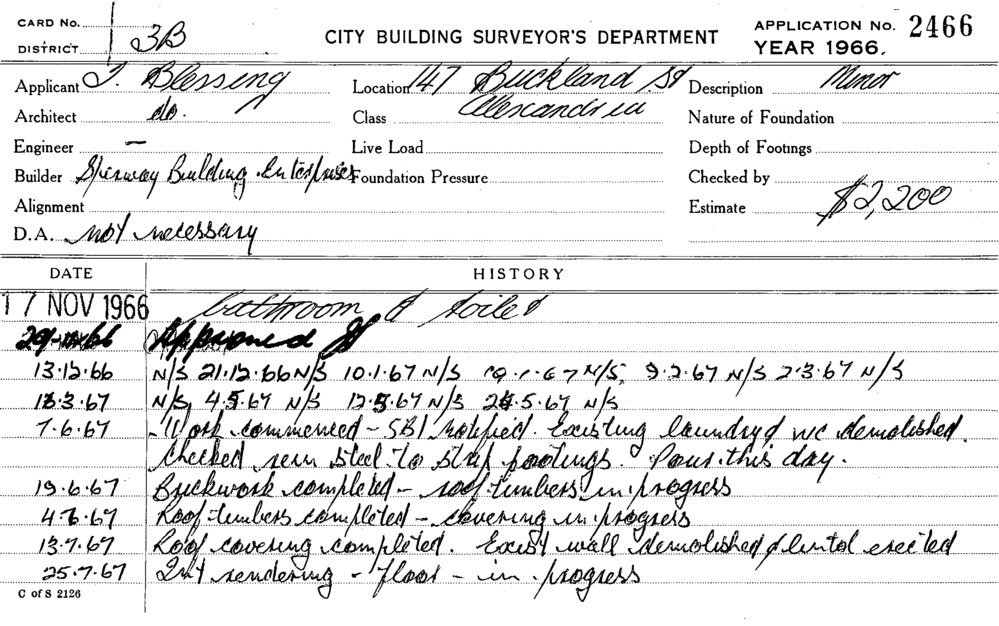 CARD No. APPLICATION No. 2466
DISTRICT 3B CITY BUILDING SURVEYOR'S DEPARTMENT YEAR 1966.
Applicant J. Blessing Location 147 Buckland St Description Minor
Architect do. Class Alexandria Nature of Foundation
Engineer — Live Load Depth of Footings
Builder Building Enterprises Foundation Pressure Checked by
Alignment Estimate $2,200
D.A. not necessary
DATE HISTORY
17 NOV 1966 bathroom & toilet
Approved
13.12.66 N/S 21.12.66 N/S 10.1.67 N/S 19.1.67 N/S, 9.2.67 N/S 2.3.67 N/S
N/S, 4.5.67 N/S 12.5.67 N/S 24.5.67 N/S
7.6.67 Work commenced - SBI Notified. Existing laundry & wc demolished.
Checked steel to strip footings. Pour this day.
19.6.67 Brickwork completed - roof timbers in progress
Roof timbers completed - covering in progress
13.7.67 Roof covering completed. Exist wall demolished & lintol erected
25.7.67 Int rendering - floor - in progress
C of S 2126